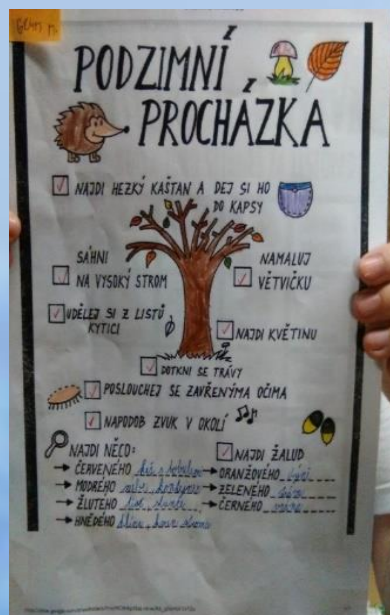 PODZIMNÍ
PROCHÁZKA
NAJDI HEZKÝ KAŠTAN A DEJ SI HO
DO KAPSY
SÁHNI
NA VYSOKÝ STROM
NAMALUJ
VĚTVIČKU
UDĚLEJ SI Z LISTŮ
KYTICI
NAJDI KVĚTINU
DOTKNI SE TRÁVY
POSLOUCHEJ SE ZAVŘENÝMA OČIMA
NAPODOB ZVUK V OKOLÍ
NAJDI NĚCO:
NAJDI ŽALUD
ČERVENÉHO
ORANŽOVÉHO
MODRÉHO
ZELENÉHO
ŽLUTÉHO
ČERNÉHO
HNĚDÉHO